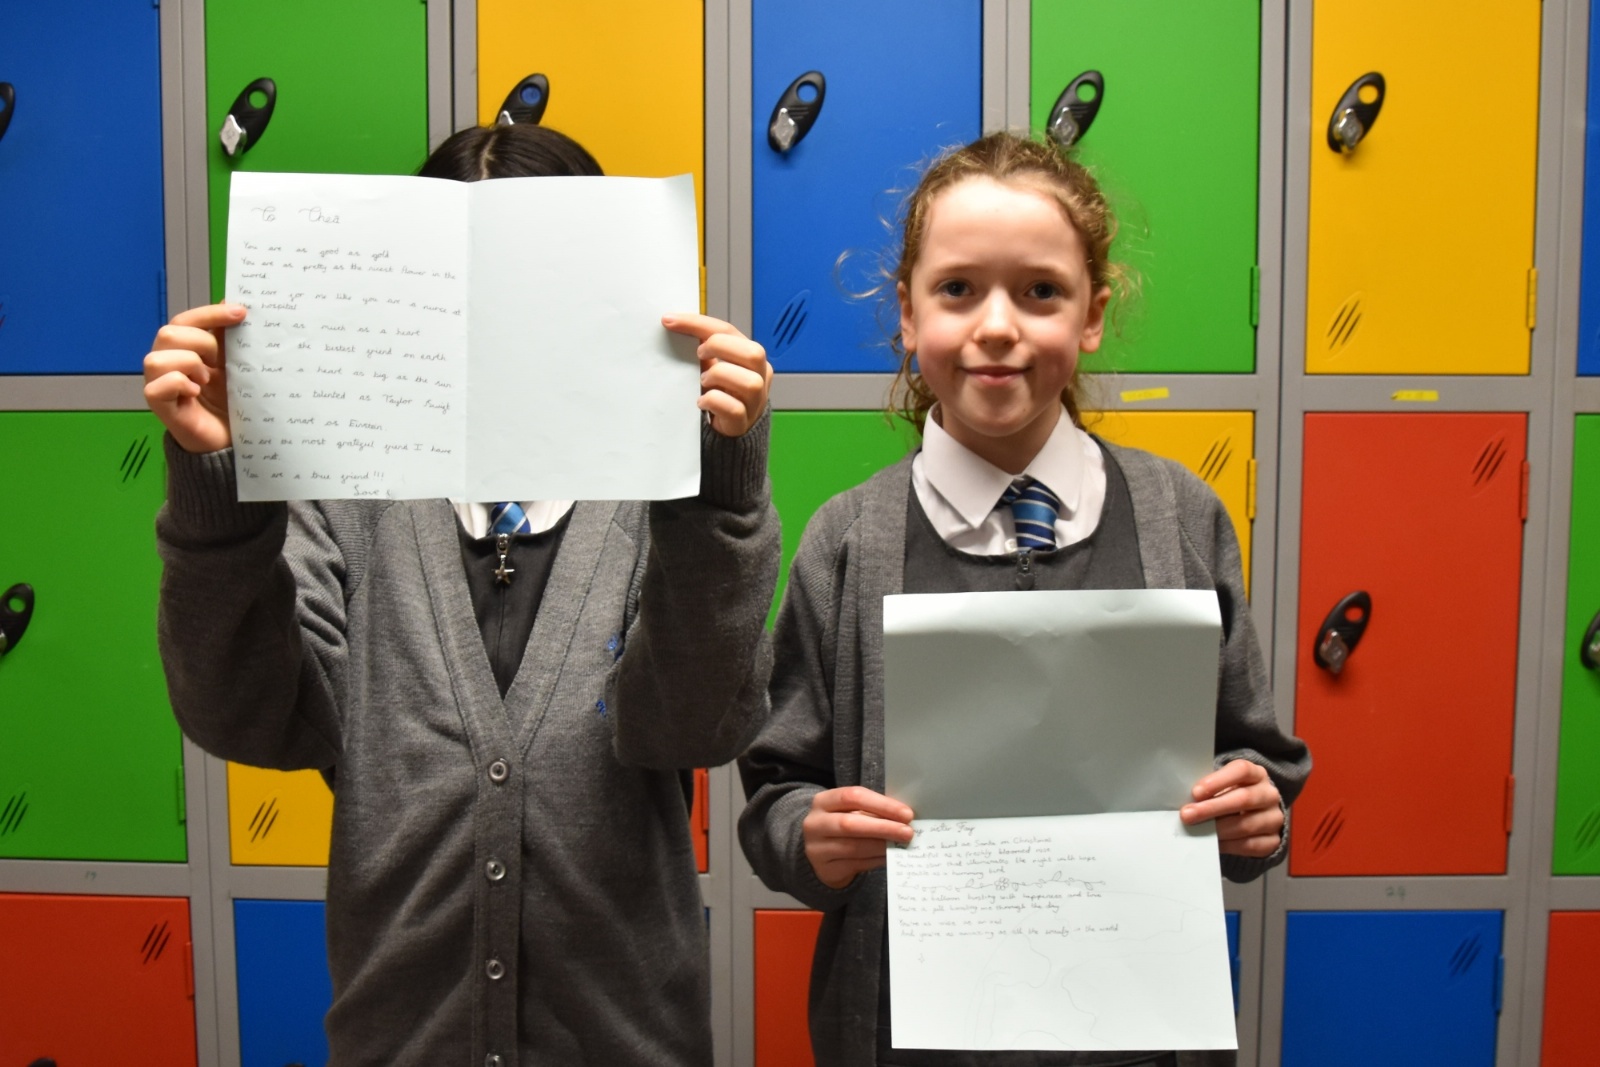 To Thea
You are as good as gold
You are as pretty as the nicest flower in the
world.
You care for me like you are a nurse at
the hospital
You love as much as a heart
You are the bestest friend on earth
You have a heart as big as the sun
You are as talented as Taylor Swift
You are smart as Einstein.
You are the most grateful friend I have
ever met.
You are a true friend!!!
Love
sister Fay
kind as Santa on Christmas
as beautiful as a freshly bloomed rose
You're a star that illuminates the night with hope
as gentle as a humming bird
You're a balloon bursting with happiness and love
You're a gift through the day
You're as wise as an owl
And you're as as all the in the world
29